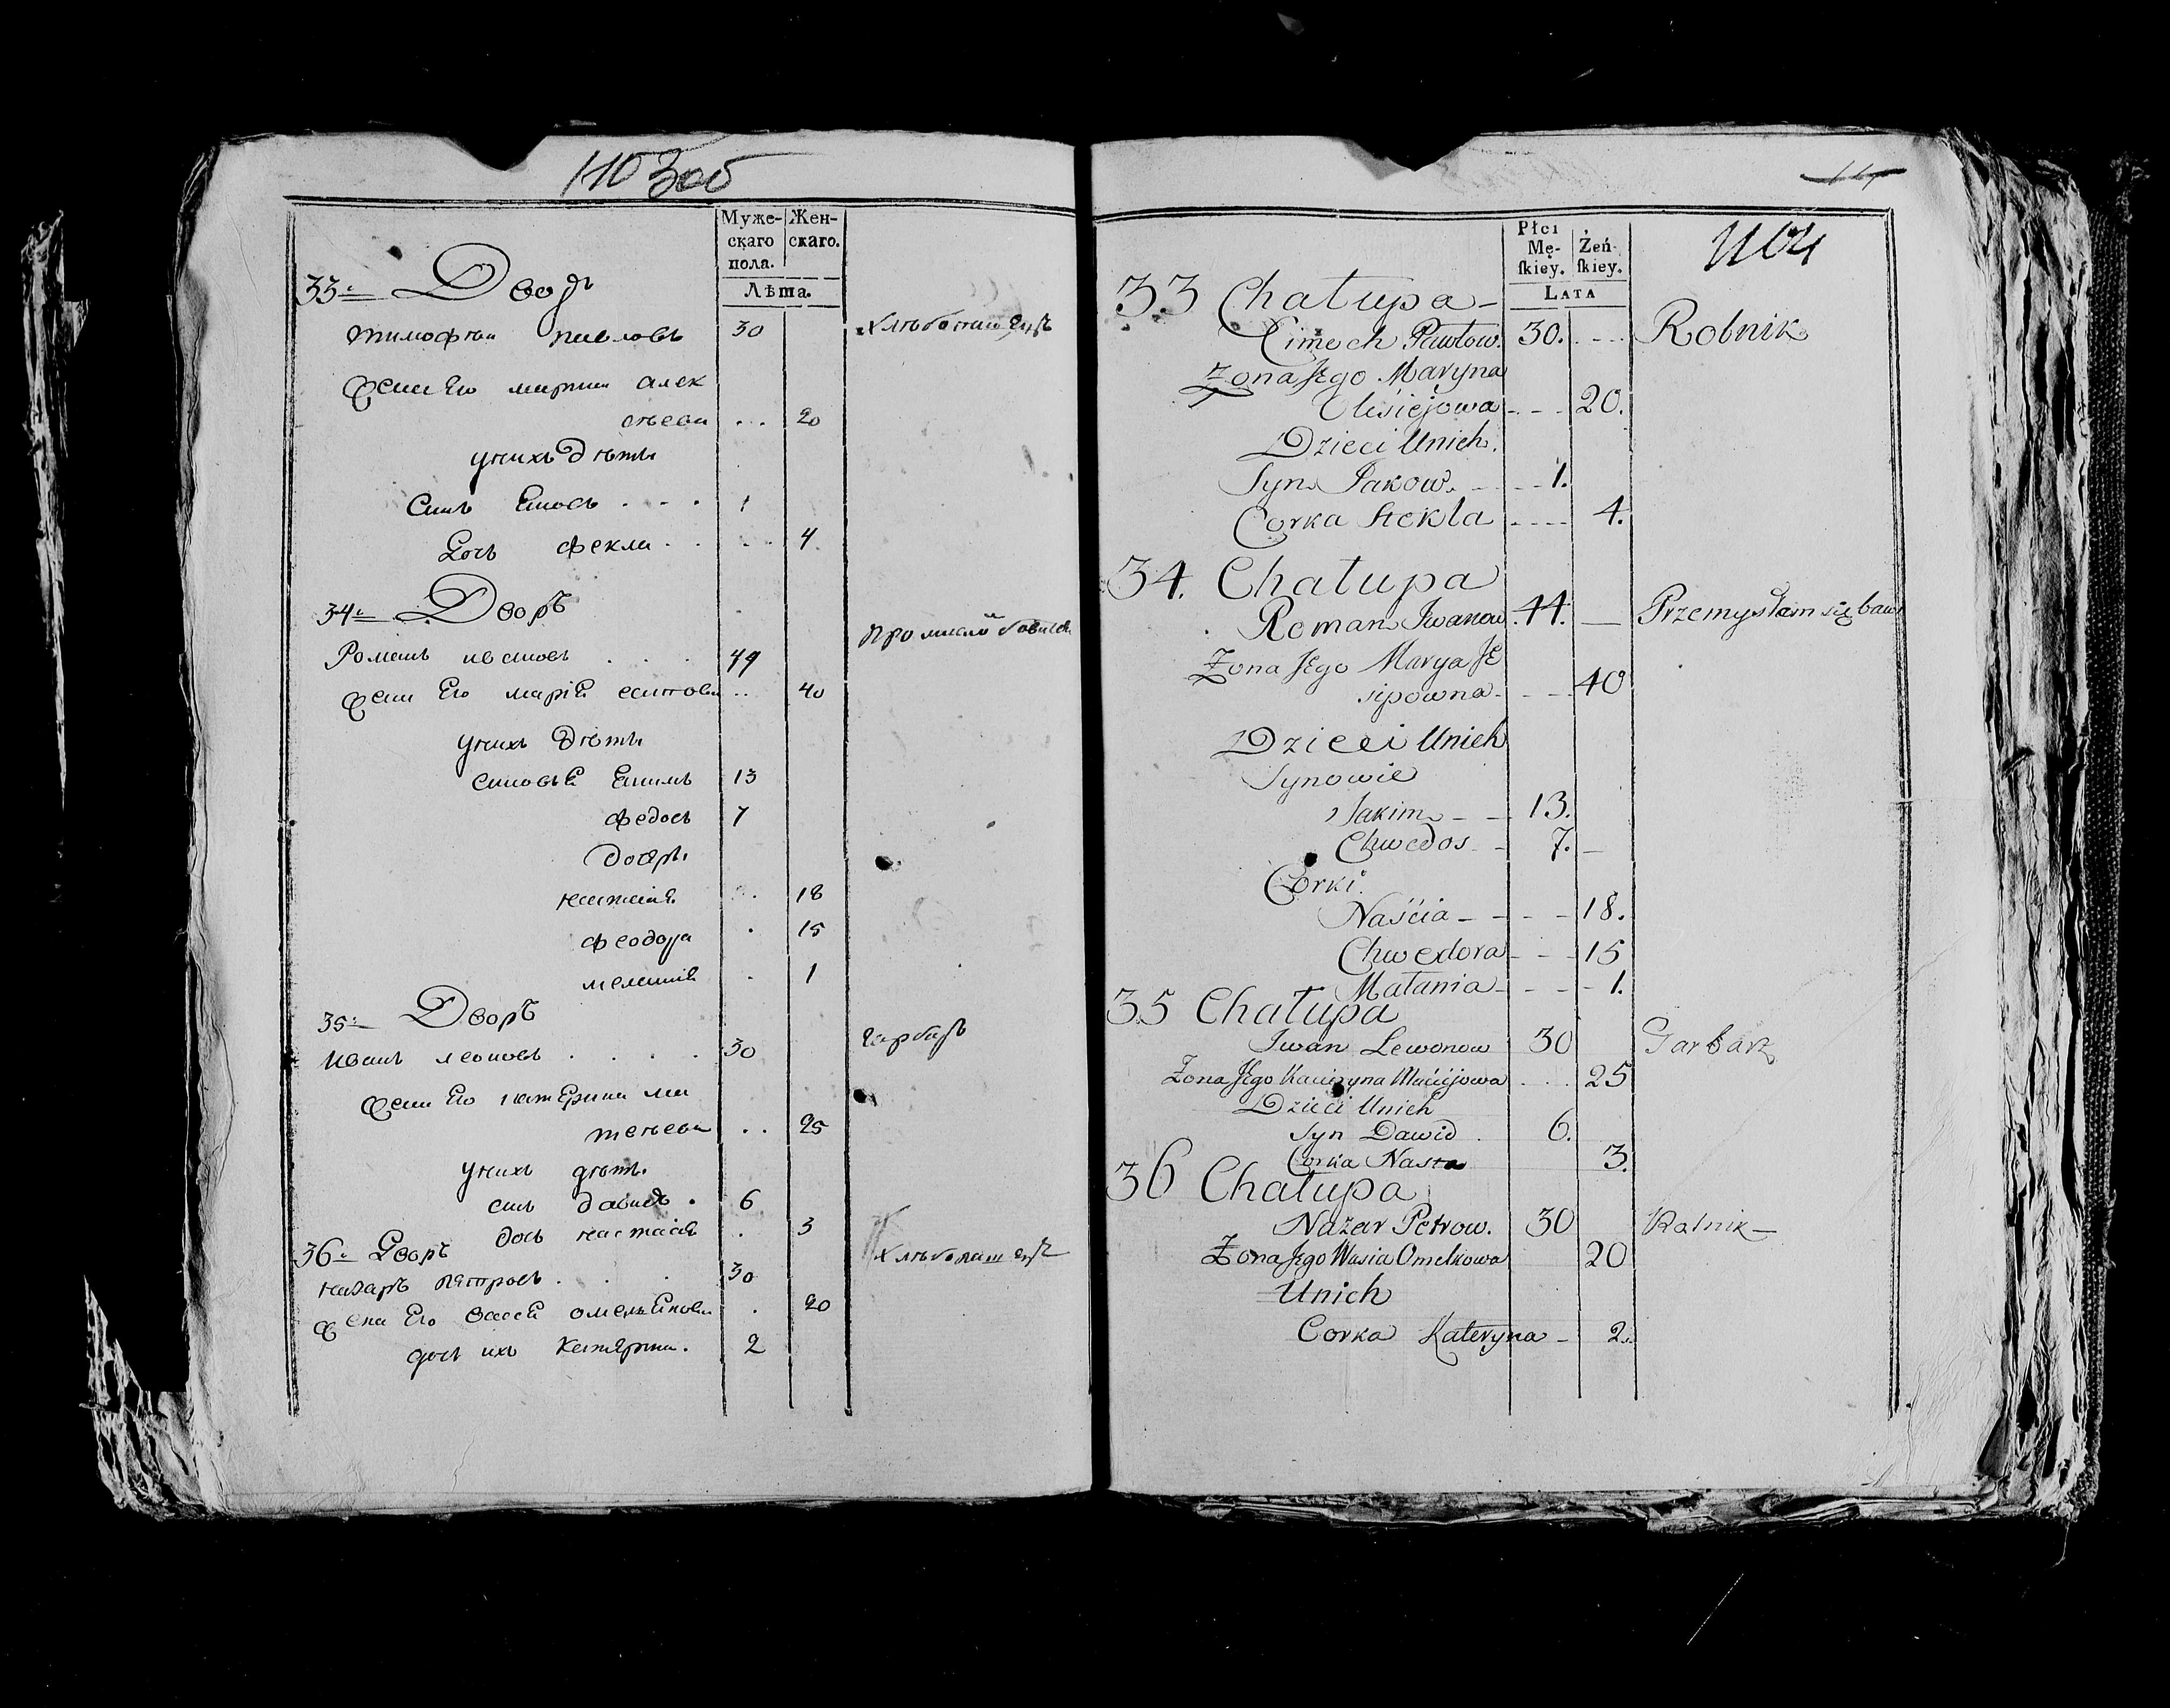 1103об
Муже- Жен-
скаго скаго.
пола.
Лѣта.
33: Дворъ
тимофѣи павловъ 30 хлѣбопашецъ
жена Его марина алек
сѣева .. 20
унихъ дѣти
Синъ Яковъ . . . 1
Дочь фекла . . . . 4
34: Дворъ
Романъ ивановъ . . . 44 промисломъ
жена Его марiя есипова .. 40
унихъ дѣти
синовья Якимъ 13
федосъ 7
дочери
настасiя . 18
феодора . 15
меланiя . 1
35: Дворъ
иванъ леоновъ . . . . 30 гарбаръ
жена Его катерина ма
тѣева .. 25
унихъ дѣти
синъ давидъ . 6
дочь настасiя . 3
36: Дворъ
назаръ петровъ . . . 30 хлѣбопашецъ
жена Его васся омельянова . 20
дочь ихъ катерина . 2
1104
Płci
Mę- Żeń-
ſkiey. ſkiey.
LATA
33 Chałupa -
Cimoch Pawłow. 30. . - - Rolnik
Żona Jego Maryna
Olisiejowa - . - . 20.
Dzieci Unich.
Syn Jakow. - - - 1.
Corka Stekla - - - - 4.
34. Chałupa
Roman Iwanow . 44. — Przemysłam się bawi
Żona Jego Marya JE
sipowna - - - 40
Dzieci Unich
Synowie
Jakim - - 13.
Chwedos - 7. -
Corki.
Naścia - - - - 18.
Chwedora - - - 15
Małania - - - - 1.
35 Chałupa
Iwan Lewonow 30 Garbarz
Żona Jego Kacieryna Maciejowa . . . 25
Dzieci Unich
Syn Dawid . 6.
Corka Nasta 3.
36 Chałupa
Nazar Petrow. 30 Rolnik -
Żona Jego Wasia Omelkowa 20
Unich
Corka Kateryna - 2.